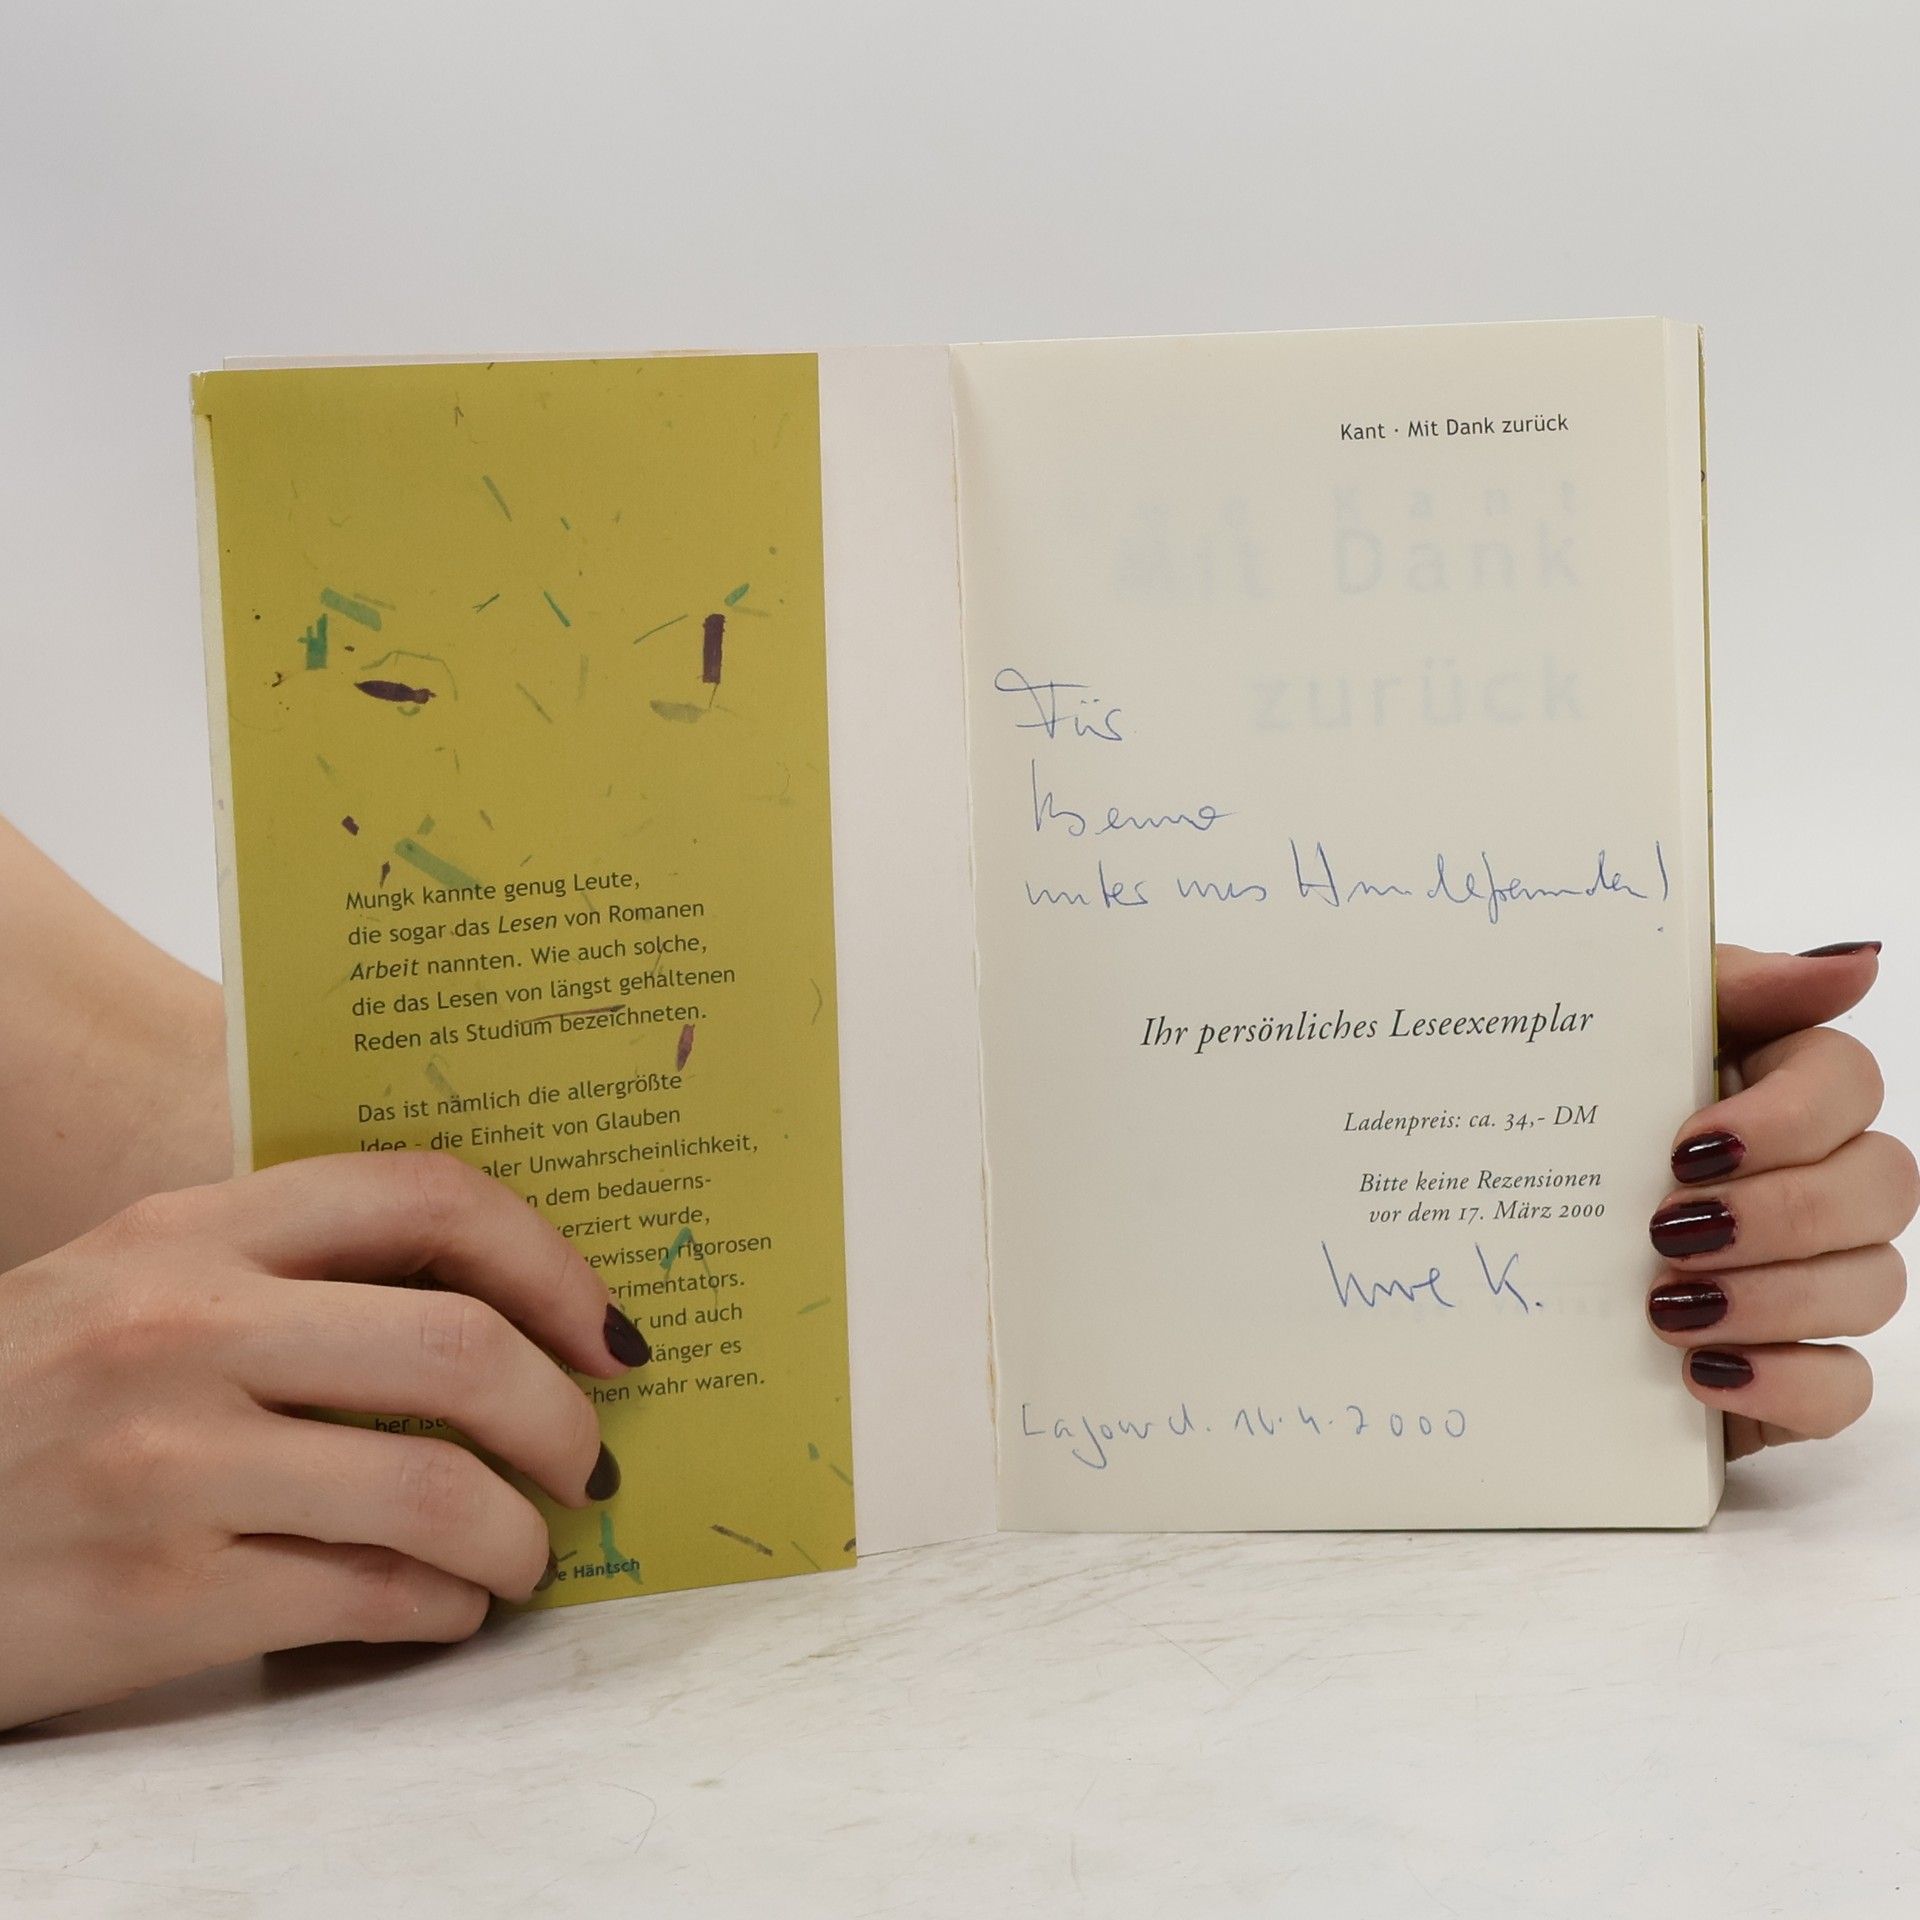 Mungk kannte genug Leute,
die sogar das Lesen von Romanen
Arbeit nannten. Wie auch solche,
die das Lesen von längst gehaltenen
Reden als Studium bezeichneten.
Das ist nämlich die allergrößte
Idee - die Einheit von Glauben
aler Unwahrscheinlichkeit,
n dem bedauerns-
erziert wurde,
ewissen rigorosen
erimentators.
r und auch
länger es
chen wahr waren.
e Häntsch
Kant · Mit Dank zurück
Kant
Mit Dank
zurück
Für
Benno
unter uns Hundefreunden!
Ihr persönliches Leseexemplar
Ladenpreis: ca. 34,- DM
Bitte keine Rezensionen
vor dem 17. März 2000
Uwe K.
d. 16.4.2000